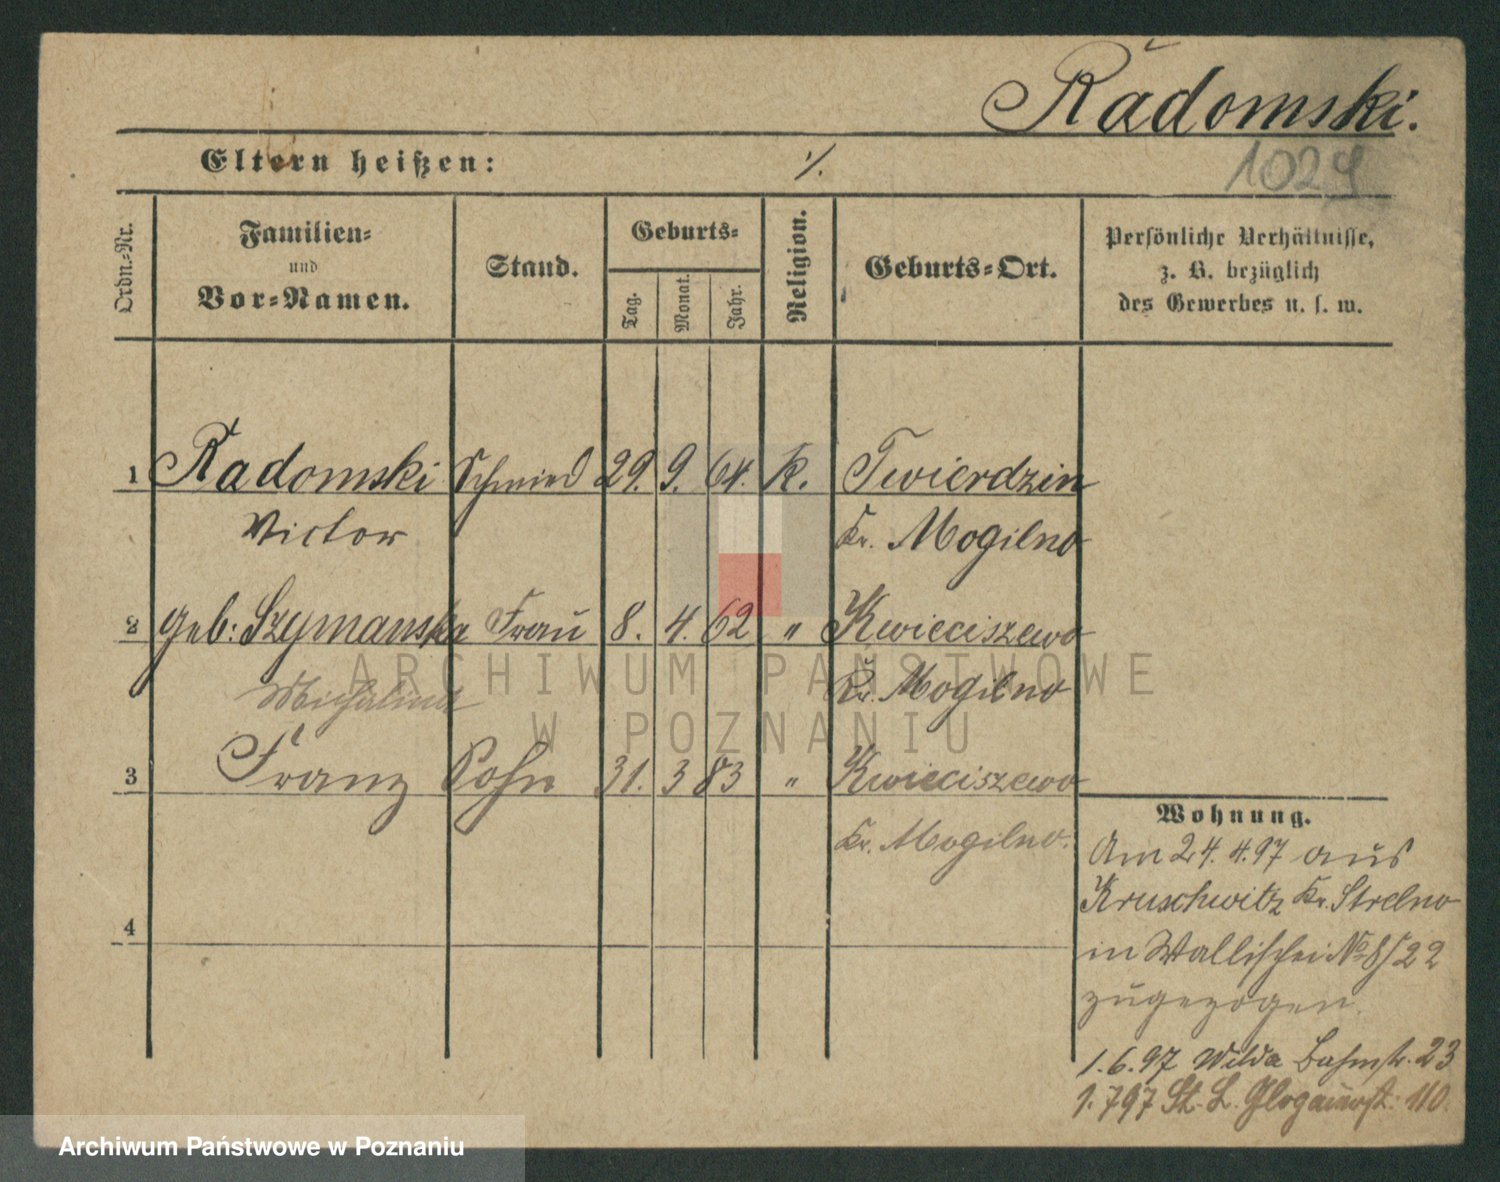 Radomski.
Eltern heißen: ./.
1024
Ordn.-Nr.
Familien-
und
Vor-Namen.
Stand.
Geburts-
Tag.
Monat.
Jahr.
Religion.
Geburts-Ort.
Persönliche Verhältnisse,
z. B. bezüglich
des Gewerbes u. s. w.
1 Radomski Schmied 29. 9. 64. K. Twierdzin
Victor Kr. Mogilno
2 geb: Szymanska Frau 8. 4. 62 " Kwieciszewo
Michalina Kr. Mogilno
ARCHIWUM PAŃSTWOWE
W POZNANIU
3 Franz Sohn 31. 3 83 " Kwieciszewo
Kr. Mogilno.
4
Wohnung.
Am 24. 4. 97 aus
Kruschwitz Kr. Strelno
in Wallischei No 8/22
zugezogen.
1. 6. 97 Wilda Bahnstr. 23
1. 7 97 St. L. Glogauerst. 110.
Archiwum Państwowe w Poznaniu